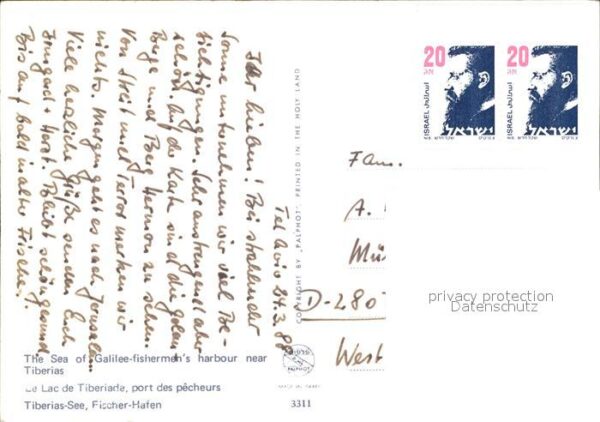 Tel Aviv 24.3.88
Ihr Lieben! Bei strahlender
Sonne unternehmen wir viel Be-
sichtigungen. Sehr anstrengend aber
schön. Auf der Karte sind die Golan
Berge und Berg Hermon zu sehen.
Von Streit und Terror merken wir
nichts. Morgen geht es nach Jerusalem.
Viele herzliche Grüße senden Euch
Irmgard + Horst. Bleibt schön gesund
Bis auf bald in alter Frische!
COPYRIGHT BY "PALPHOT" PRINTED IN THE HOLY LAND
20
ISRAEL
ישראל
20
ISRAEL
ישראל
Fam.
A.
Mü
D-280
West
privacy protection
Datenschutz
The Sea of Galilee-fishermen's harbour near
Tiberias
Le Lac de Tiberiade, port des pêcheurs
Tiberias-See, Fischer-Hafen
PALPHOT
MADE IN ISRAEL
3311